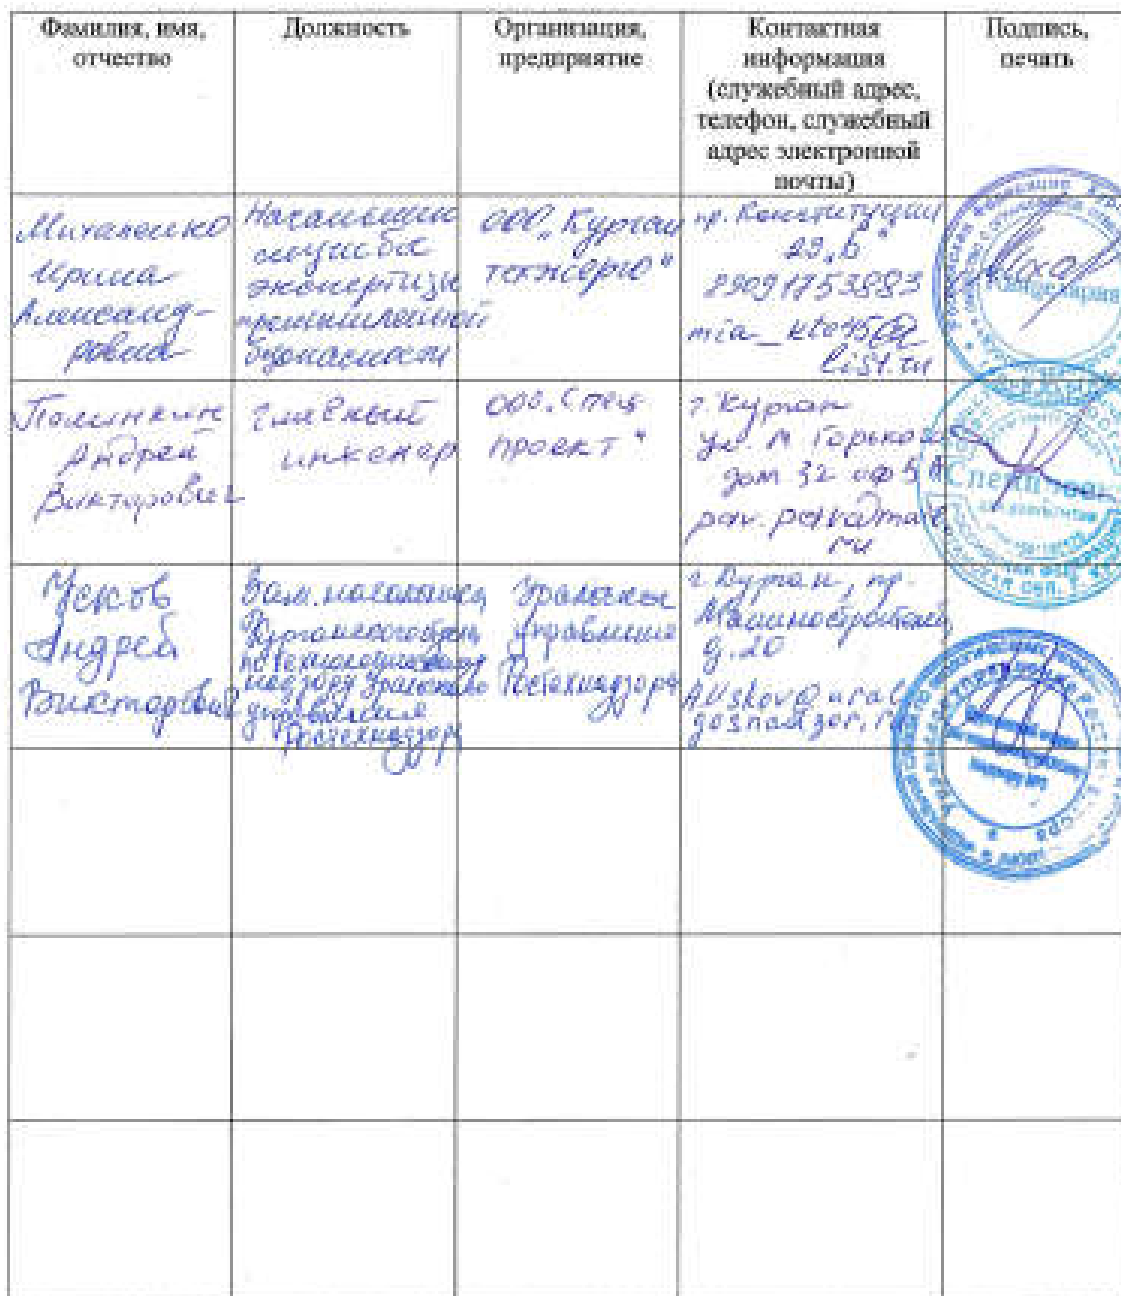 Фамилия, имя,
отчество
Должность
Организация,
предприятие
Контактная
информация
(служебный адрес,
телефон, служебный
адрес электронной
почты)
Подпись,
печать
Михаленко
Ирина
Александ-
ровна
Начальник
службы
экспертизы
промышленной
безопасности
ООО „Курган
техэнерго"
пр. Конституции
29 „б"
89091753883
list.ru
Канцелярия
Андрей
Викторович
главный
инженер
ООО „Спец
проект"
г. Курган
ул. М Горького
дом 32 оф
Усков
Андрей
Викторович
Зам. начальника
Курганского отдела
по технологическому
надзору Уральского
управления
Ростехнадзора
Уральское
управление
Ростехнадзора
г. Курган, пр.
Машиностроителей,
д. 20
A.Uskov@ural.
gosnadzor.ru